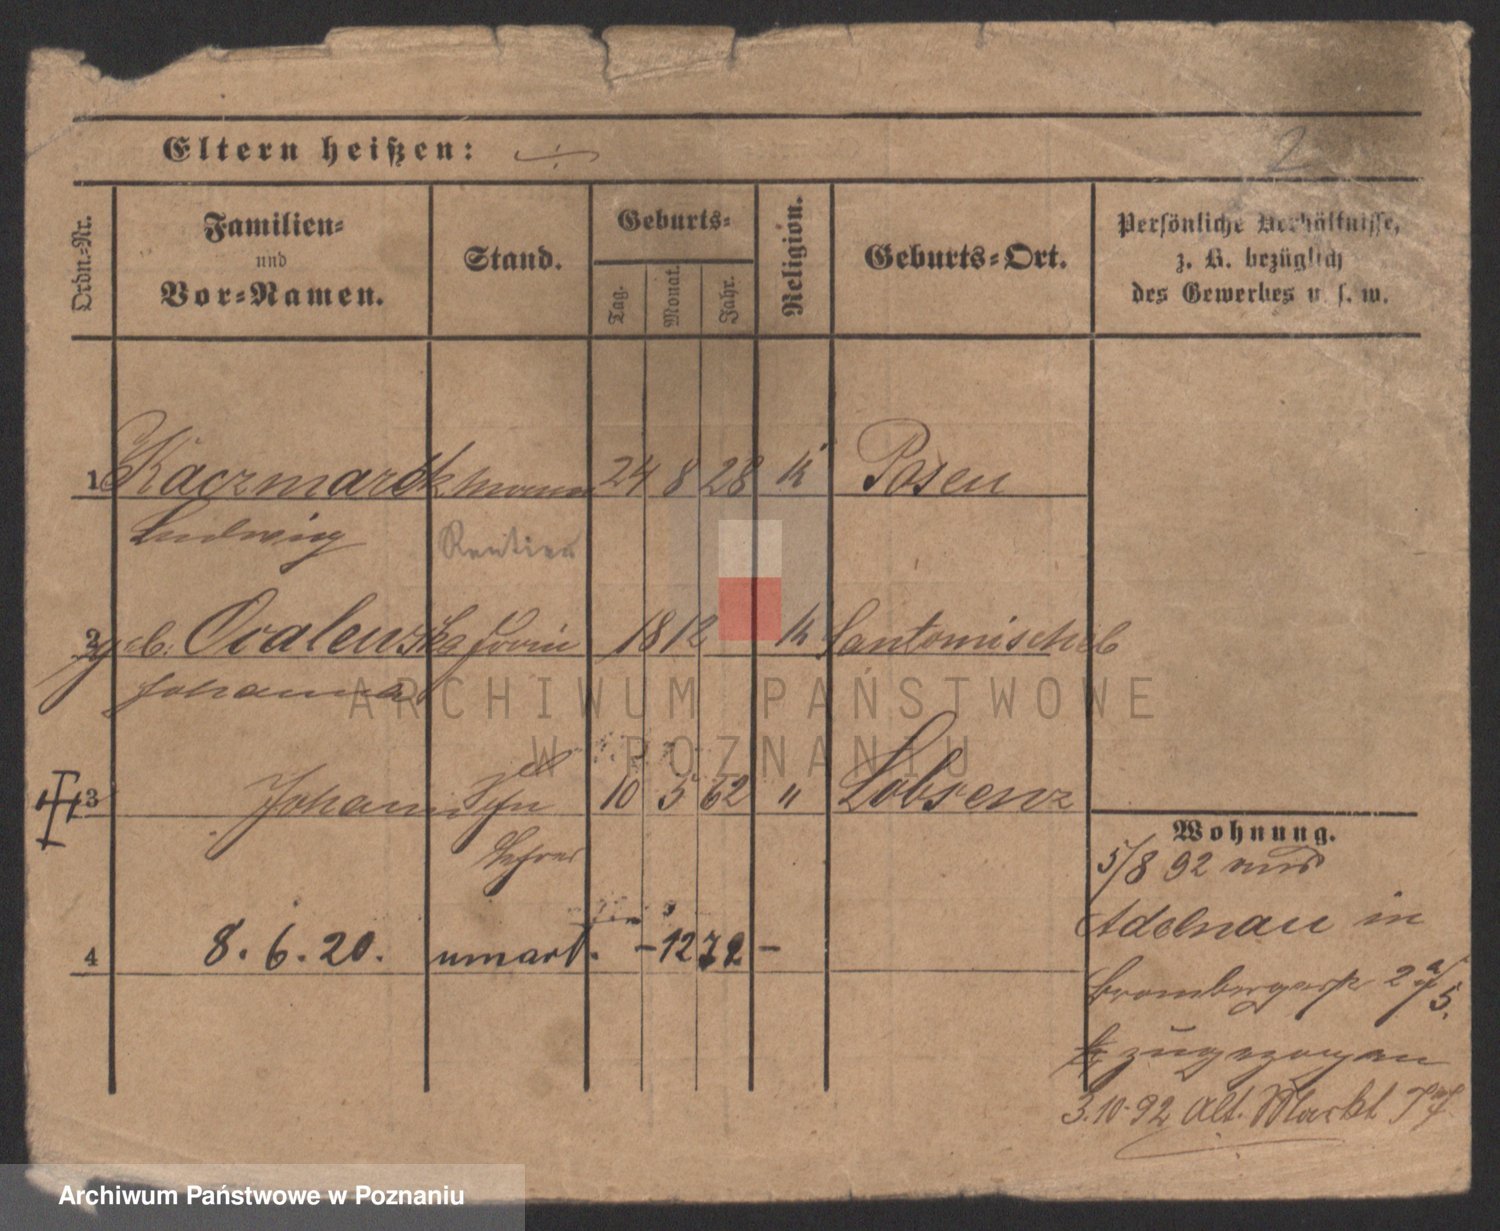 Eltern heißen: ÷
2
Ordn.-Nr.
Familien-
und
Vor-Namen.
Stand.
Geburts-
Tag.
Monat.
Jahr.
Religion.
Geburts-Ort.
Persönliche Verhältnisse,
z. B. bezüglich
des Gewerbes u. s. w.
1 Kaczmarek 24 8 28 k Posen
Ludwig Rentier
2 geb. 18 12 k Santomischel
Johanna
ARCHIWUM PAŃSTWOWE
W POZNANIU
3 Johann Sohn 10 5 62 " Lobsenz
Lehrer
Wohnung.
5/8 92 aus
Adelnau in
4 8.6.20. umart. - 12 72 -
Brombergerstr 2a/5.
zugezogen
3.10.92 Alt. Markt
Archiwum Państwowe w Poznaniu